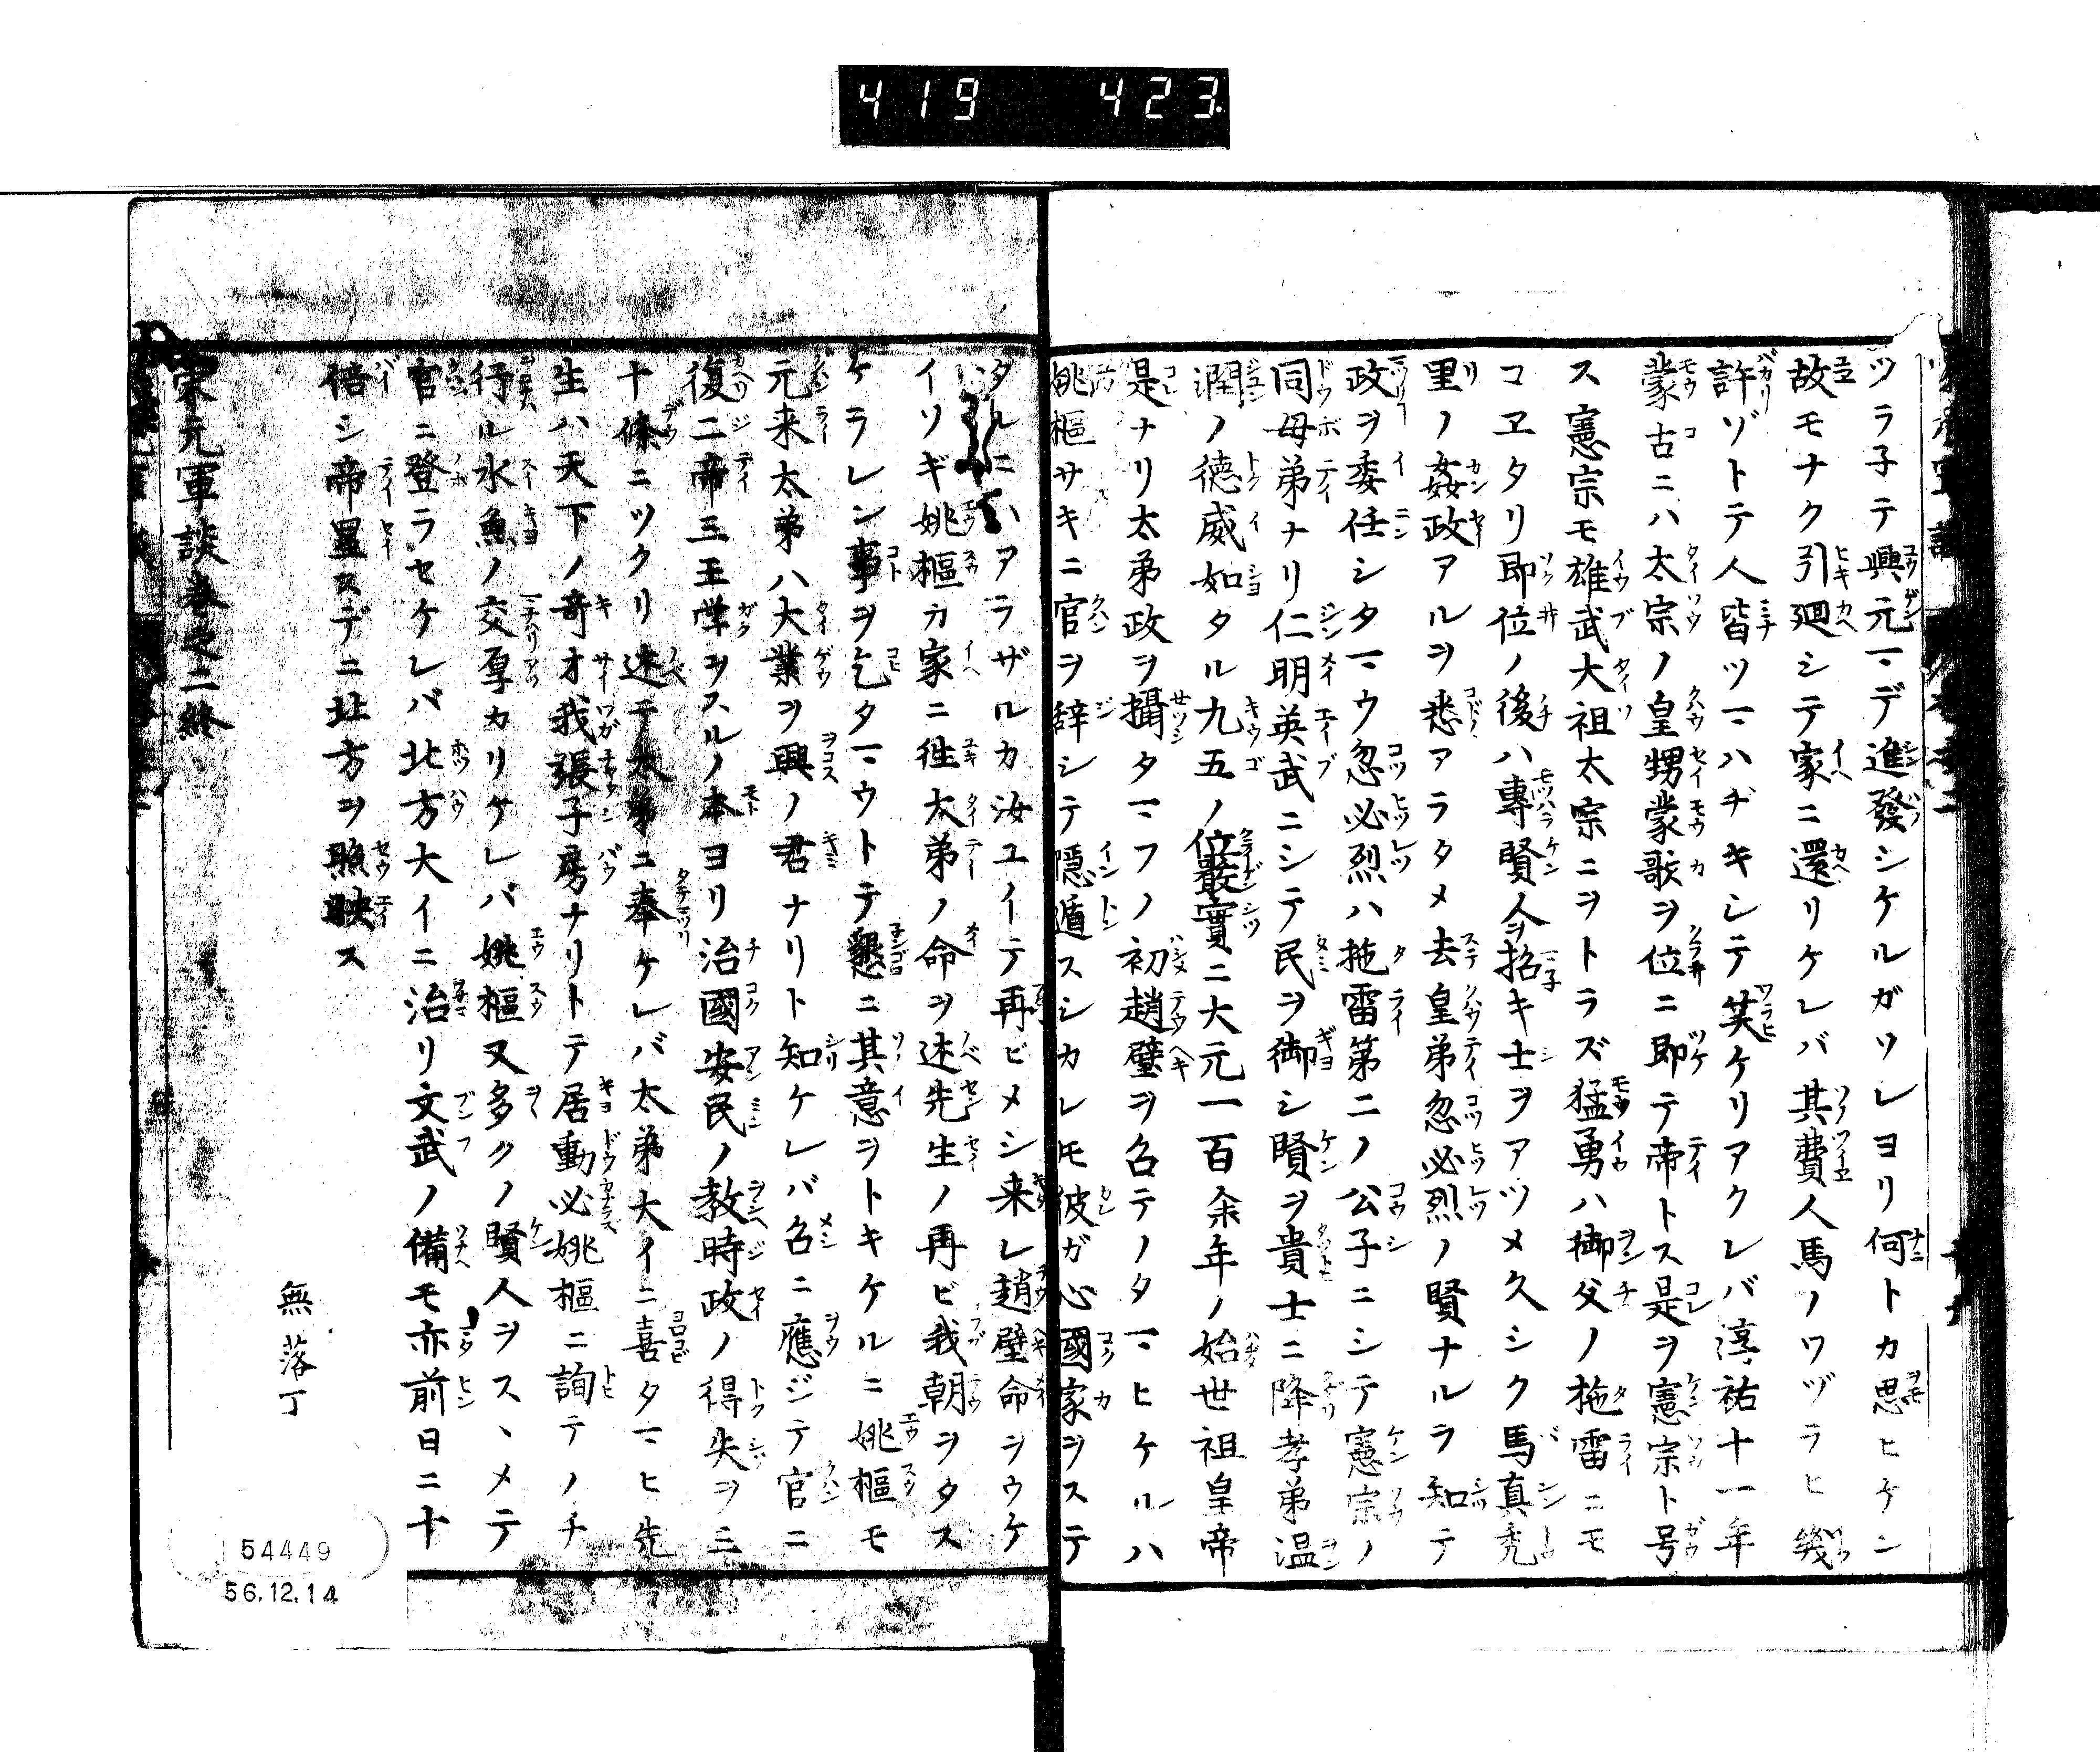 419 423
ツラ子テ興元マデ進發シケルガソレヨリ何トカ思ヒケン
故モナク引廻シテ家ニ還リケレバ其費人馬ノワヅラヒ幾
許ゾトテ人皆ツマハヂキシテ笑ケリアクレバ淳祐十一年
蒙古ニハ太宗ノ皇甥蒙哥ヲ位ニ即テ帝トス是ヲ憲宗ト号
ス憲宗モ雄武大祖太宗ニヲトラズ猛勇ハ御父ノ拖雷ニモ
コヱタリ即位ノ後ハ專賢人招キ士ヲアツメ久シク馬真禿
里ノ姦政アルヲ悉アラタメ去皇弟忽必烈ノ賢ナルヲ知テ
政ヲ委任シタマウ忽必烈ハ拖雷第二ノ公子ニシテ憲宗ノ
同母弟ナリ仁明英武ニシテ民ヲ御シ賢ヲ貴士ニ降孝弟温
潤ノ德威如タル九五ノ位嚴實ニ大元一百余年ノ始世祖皇帝
是ナリ太弟政ヲ攝タマフノ初趙璧ヲ召テノタマヒケルハ
姚樞サキニ官ヲ辞シテ隱遁スシカレモ彼ガ心國家ヲステ
タルニハアラザルカ汝ユイテ再ビメシ来レ趙璧命ヲウケ
イソギ姚樞カ家ニ徃太弟ノ命ヲ述先生ノ再ビ我朝ヲタス
ケラレン事ヲ乞タマウトテ懇ニ其意ヲトキケルニ姚樞モ
元来太弟ハ大業ヲ興ノ君ナリト知ケレバ召ニ應ジテ官ニ
復二帝三王学ヲスルノ本ヨリ治國安民ノ教時政ノ得失ヲ三
十條ニツクリ述テ太弟ニ奉ケレバ太弟大イニ喜タマヒ先
生ハ天下ノ奇才我張子房ナリトテ居動必姚樞ニ詢テノチ
行ル水魚ノ交厚カリケレバ姚樞又多クノ賢人ヲスヽメテ
官ニ登ラセケレバ北方大イニ治リ文武ノ備モ亦前日ニ十
倍シ帝星スデニ北方ヲ照映ス
宋元軍談巻之二終
無落丁
54449
56.12.14